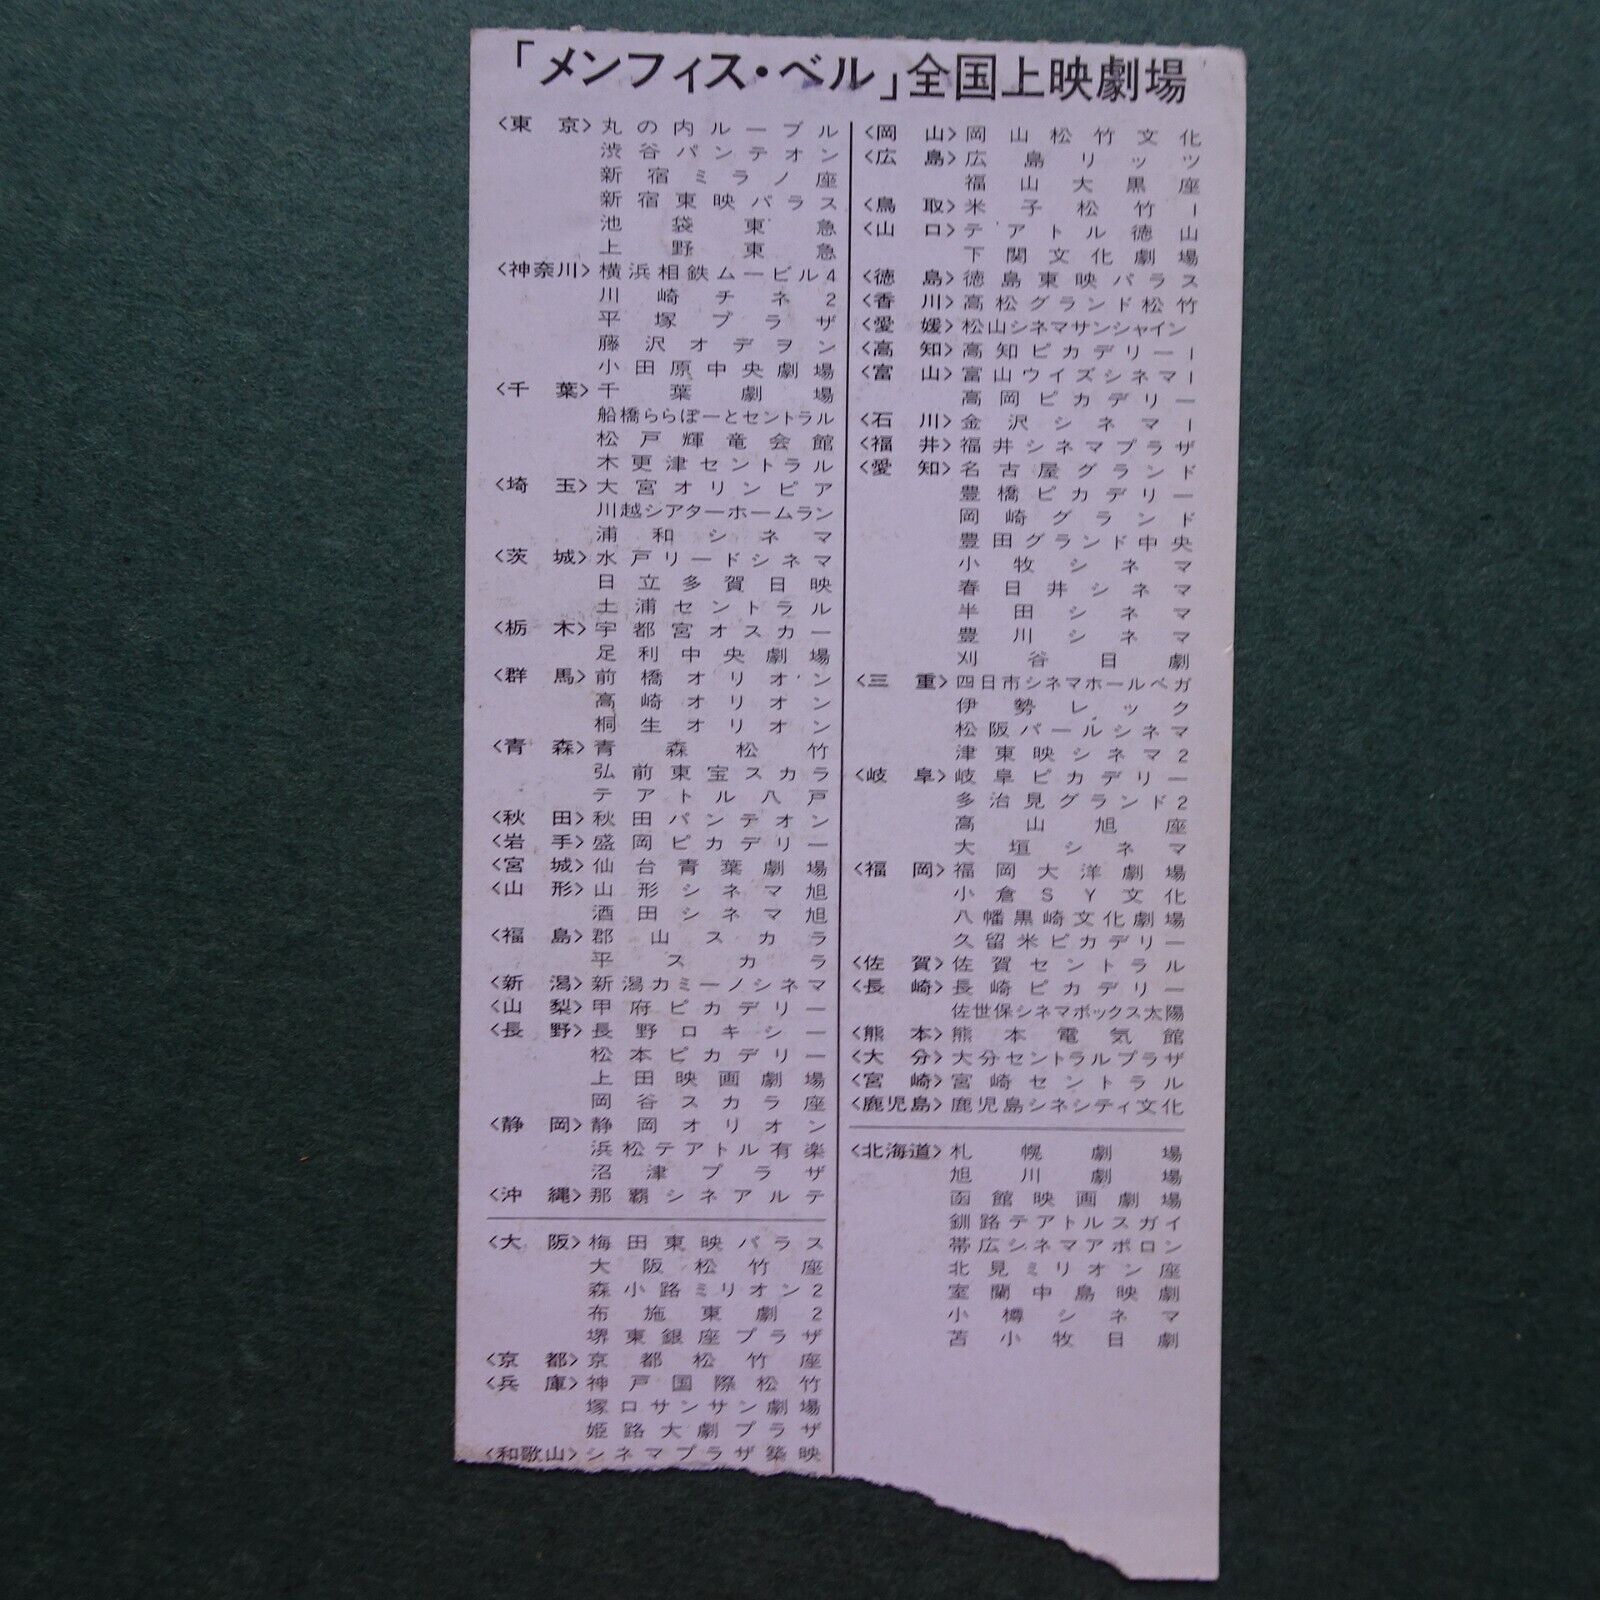 「メンフィス・ベル」全国上映劇場
〈東京〉丸の内ルーブル
渋谷パンテオン
新宿ミラノ座
新宿東映パラス
池袋東急
上野東急
〈神奈川〉横浜相鉄ムービル4
川崎チネ2
平塚プラザ
藤沢オデヲン
小田原中央劇場
〈千葉〉千葉劇場
船橋ららぽーとセントラル
松戸輝竜会館
木更津セントラル
〈埼玉〉大宮オリンピア
川越シアターホームラン
浦和シネマ
〈茨城〉水戸リードシネマ
日立多賀日映
土浦セントラル
〈栃木〉宇都宮オスカー
足利中央劇場
〈群馬〉前橋オリオン
高崎オリオン
桐生オリオン
〈青森〉青森松竹
弘前東宝スカラ
テアトル八戸
〈秋田〉秋田パンテオン
〈岩手〉盛岡ピカデリー
〈宮城〉仙台青葉劇場
〈山形〉山形シネマ旭
酒田シネマ旭
〈福島〉郡山スカラ
平スカラ
〈新潟〉新潟カミーノシネマ
〈山梨〉甲府ピカデリー
〈長野〉長野ロキシー
松本ピカデリー
上田映画劇場
岡谷スカラ座
〈静岡〉静岡オリオン
浜松テアトル有楽
沼津プラザ
〈沖縄〉那覇シネアルテ
〈大阪〉梅田東映パラス
大阪松竹座
森小路ミリオン2
布施東劇2
堺東銀座プラザ
〈京都〉京都松竹座
〈兵庫〉神戸国際松竹
塚口サンサン劇場
姫路大劇プラザ
〈和歌山〉シネマプラザ築映
〈岡山〉岡山松竹文化
〈広島〉広島リッツ
福山大黒座
〈鳥取〉米子松竹1
〈山口〉テアトル徳山
下関文化劇場
〈徳島〉徳島東映パラス
〈香川〉高松グランド松竹
〈愛媛〉松山シネマサンシャイン
〈高知〉高知ピカデリー1
〈富山〉富山ウイズシネマ1
高岡ピカデリー
〈石川〉金沢シネマ1
〈福井〉福井シネマプラザ
〈愛知〉名古屋グランド
豊橋ピカデリー
岡崎グランド
豊田グランド中央
小牧シネマ
春日井シネマ
半田シネマ
豊川シネマ
刈谷日劇
〈三重〉四日市シネマホールベガ
伊勢レック
松阪パールシネマ
津東映シネマ2
〈岐阜〉岐阜ピカデリー
多治見グランド2
高山旭座
大垣シネマ
〈福岡〉福岡大洋劇場
小倉SY文化
八幡黒崎文化劇場
久留米ピカデリー
〈佐賀〉佐賀セントラル
〈長崎〉長崎ピカデリー
佐世保シネマボックス太陽
〈熊本〉熊本電気館
〈大分〉大分セントラルプラザ
〈宮崎〉宮崎セントラル
〈鹿児島〉鹿児島シネシティ文化
〈北海道〉札幌劇場
旭川劇場
函館映画劇場
釧路テアトルスガイ
帯広シネマアポロン
北見ミリオン座
室蘭中島映劇
小樽シネマ
苫小牧日劇